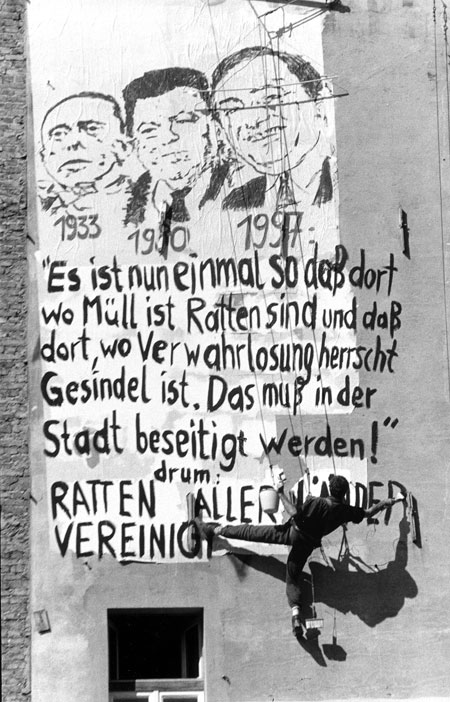 1933 1997
"Es ist nun einmal so daß dort
wo Müll ist Ratten sind und daß
dort, wo Verwahrlosung herrscht
Gesindel ist. Das muß in der
Stadt beseitigt werden!"
drum:
RATTEN ALLER LÄNDER
VEREINIGT